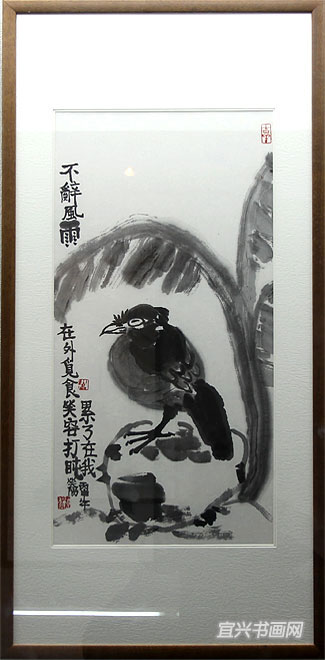 不辭風雨
在外覓食笑容打盹
累了在我
宜兴书画网